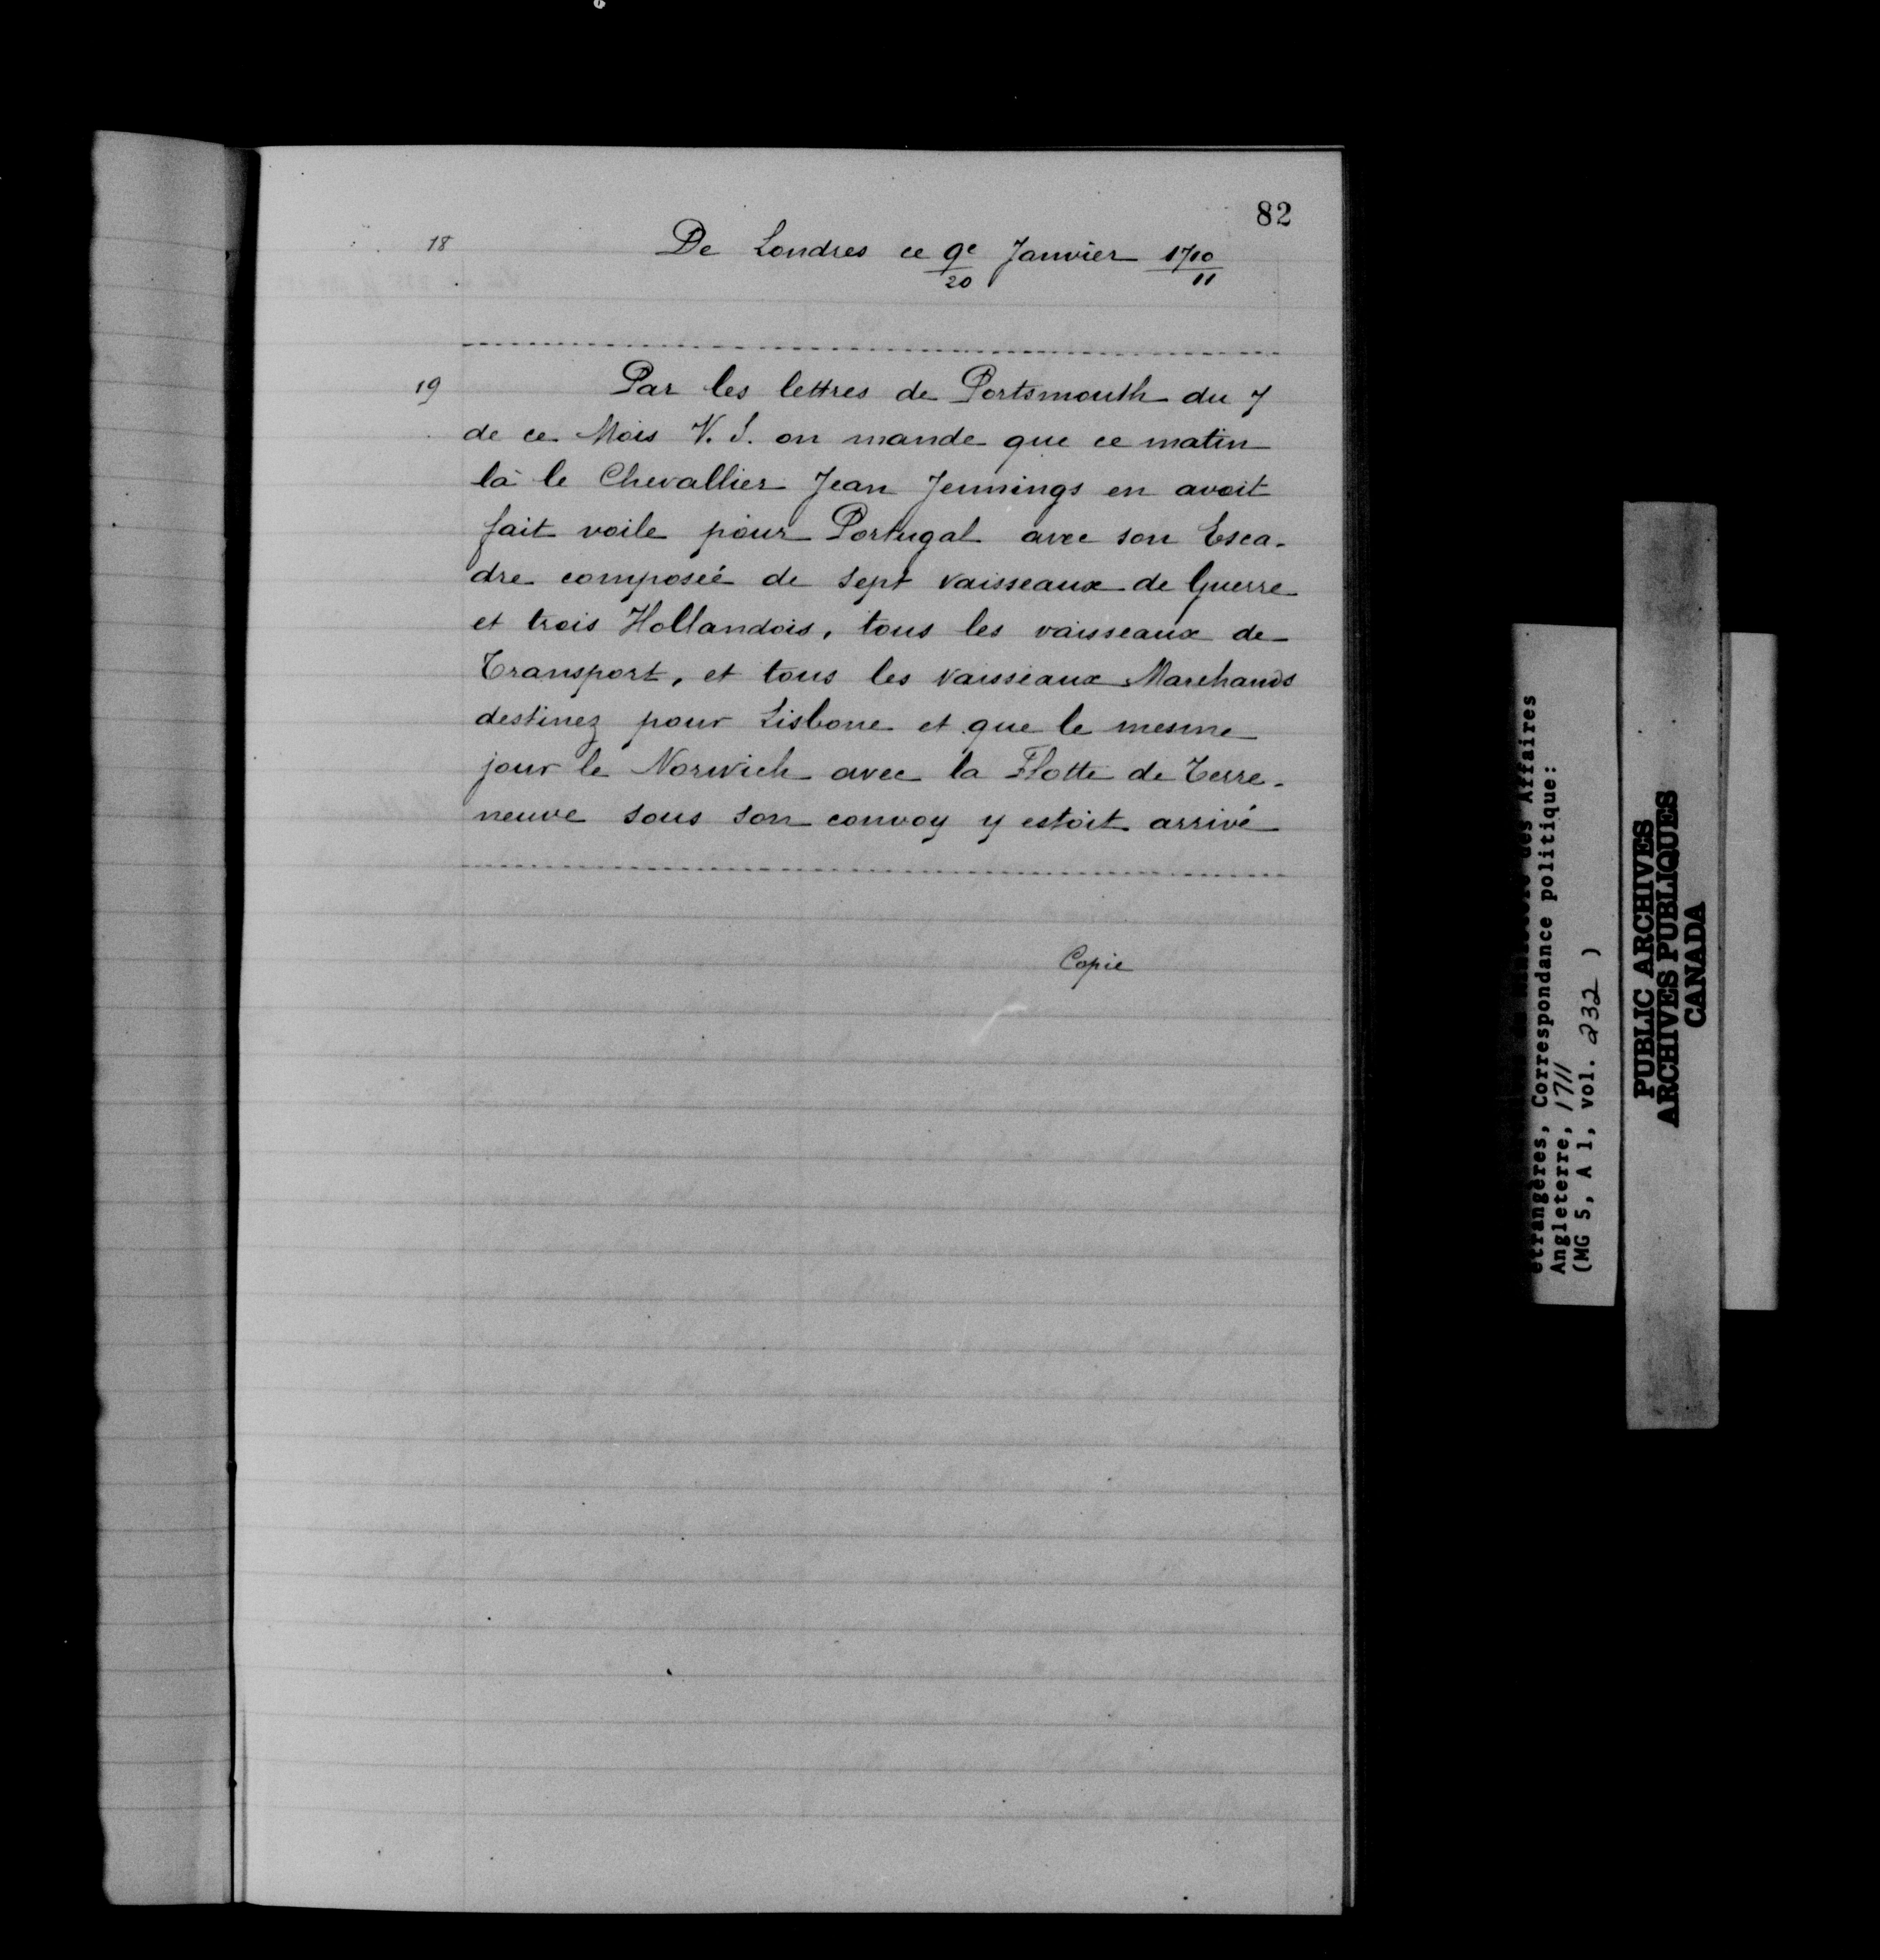 82
18 De Londres ce 9e/20 Janvier 1710/11
19 Par les lettres de Portsmouth du 7
de ce Mois V. S. on mande que ce matin
là le Chevallier Jean Jennings en avoit
fait voile pour Portugal avec son Esca-
dre composée de sept vaisseaux de Guerre
et trois Hollandois, tous les vaisseaux de
Transport, et tous les vaisseaux Marchands
destinez pour Lisbone et que le mesme
jour le Norwich avec la Flotte de Terre-
neuve sous son convoy y estoit arrivé
Copie
des Affaires
étrangères, Correspondance politique:
Angleterre, 1711
(MG 5, A 1, vol. 232 )
PUBLIC ARCHIVES
ARCHIVES PUBLIQUES
CANADA